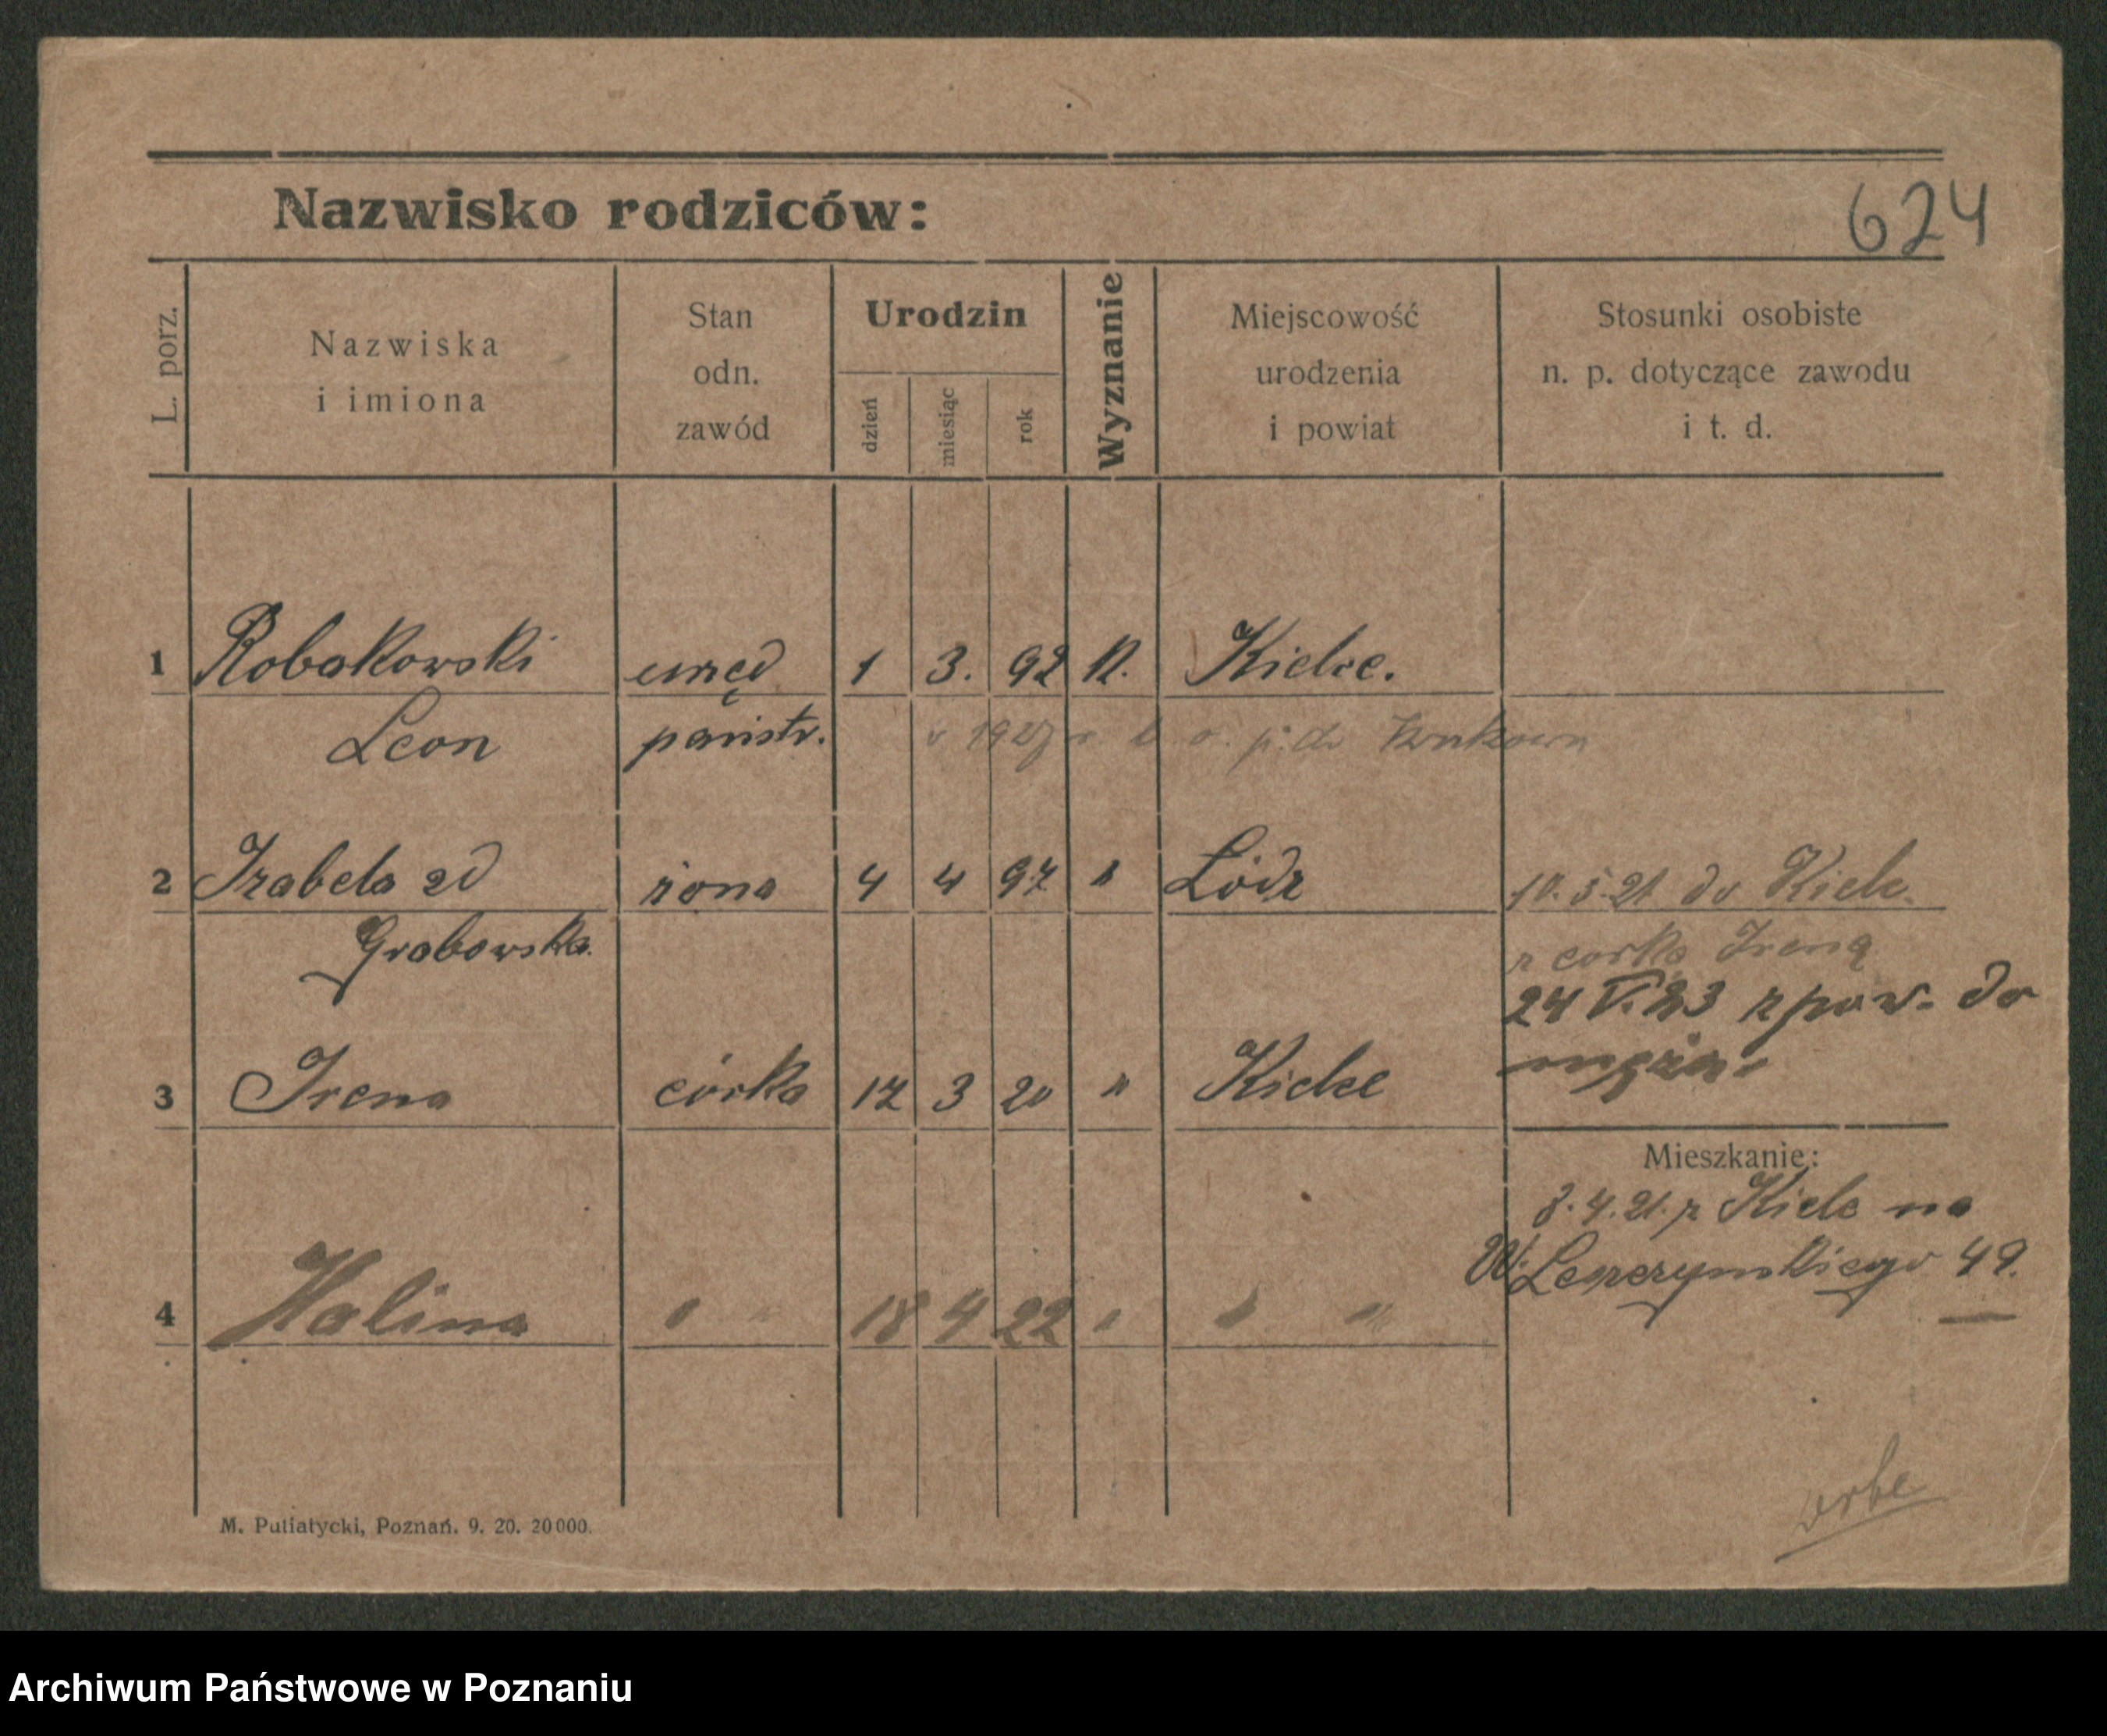 Nazwisko rodziców:
624
L. porz.
Nazwiska
i imiona
Stan
odn.
zawód
Urodzin
dzień
miesiąc
rok
Wyznanie
Miejscowość
urodzenia
i powiat
Stosunki osobiste
n. p. dotyczące zawodu
i t. d.
1 Robakowski urzęd 1 3. 92 K. Kielce.
Leon państw.
1927 r.
2 Izabela zd żona 4 4 97 " Łódź 10.5.21 do Kielc.
Grabowska. z córką Ireną
24 V. 23 z pow. do
męża
3 Irena córka 17 3 20 " Kielce
Mieszkanie:
8.4.21. z Kielc na
W. Leszczyńskiego 49.
4 Halina " " 18 4 22 " " "
M. Putiatycki, Poznań. 9. 20. 20000.
Archiwum Państwowe w Poznaniu